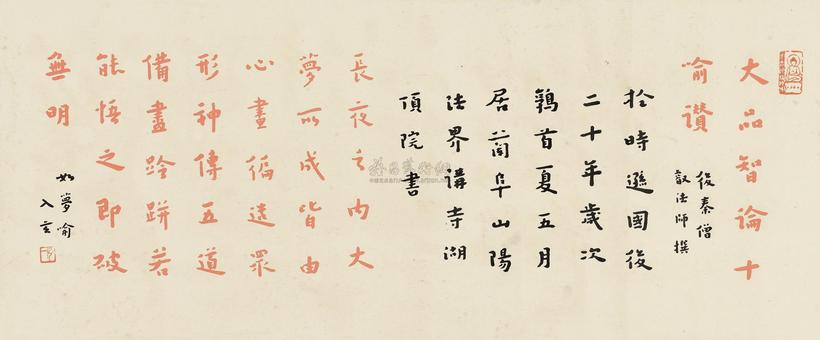 大品智論十
喻讚
後秦僧
叡法師撰
於時遜國後
二十年歲次
鶉首夏五月
居蕳阜山陽
法界講寺湖
頂院書
長夜之內大
夢所成皆由
心畫徧造眾
形神傳五道
備盡跉跰若
能悟之即破
無明
如夢喻
入玄